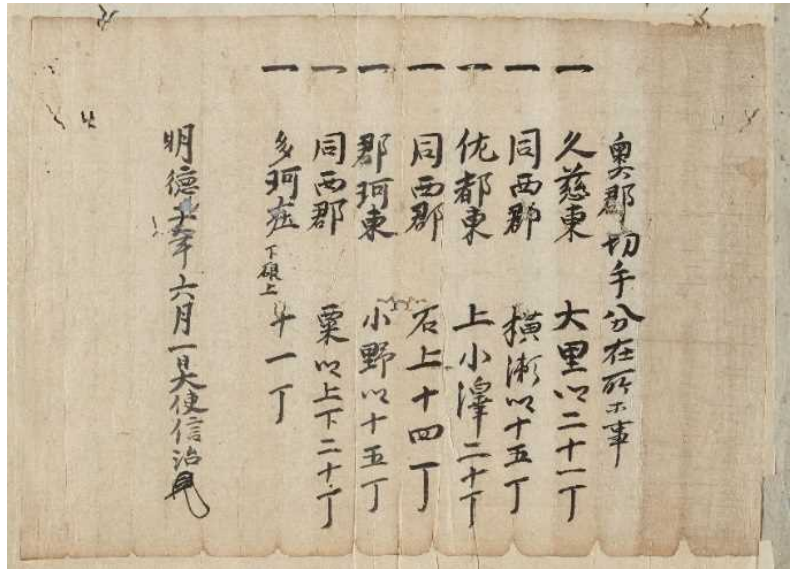 奥郡切手分在所等事
一 久慈東 大里以二十一丁
一 同西郡 横瀬以十五丁
一 佐都東 上小澤二十丁
一 同西郡 石上十四丁
一 那珂東 小野以十五丁
一 同西郡 粟以上下二十丁
一 多珂庄 一丁
明徳 年六月一日大使信治